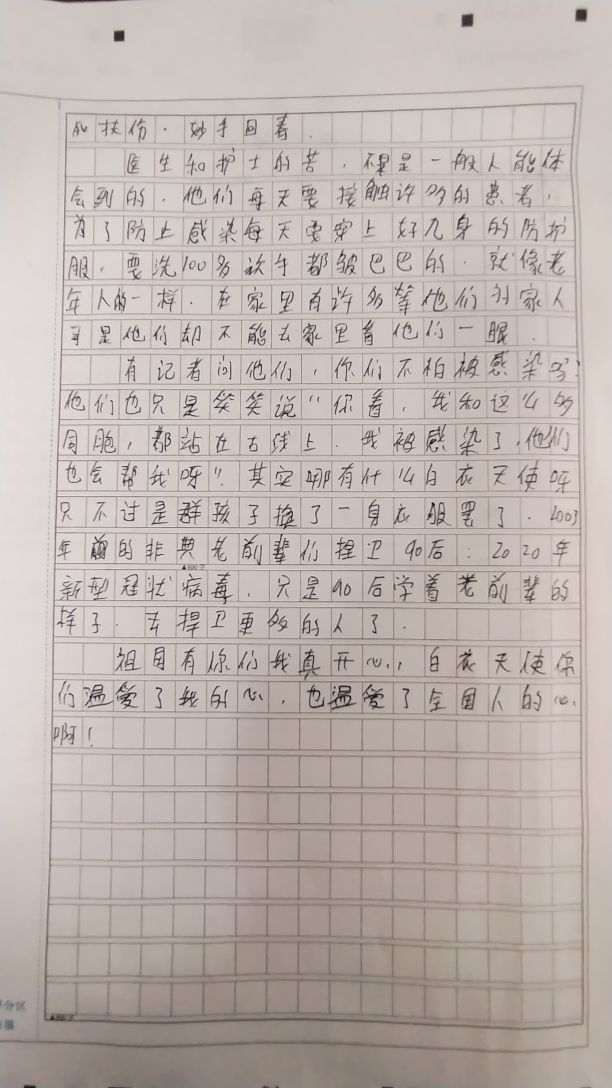 死扶伤.妙手回春.
医生和护士的苦.不是一般人能体
会到的.他们每天要接触许多的患者,
为了防止感染每天要穿上好几身的防护
服.要洗100多次手都皱巴巴的.就像老
年人的一样.在家里有许多等他们的家人
可是他们却不能去家里看他们一眼.
有记者问他们,你们不怕被感染吗?
他们也只是笑笑说"你看,我和这么多
同胞,都站在古线上.我被感染了,他们
也会帮我呀".其实哪有什么白衣天使呀
只不过是群孩子换了一身衣服罢了.2003
年前的非典老前辈们捍卫90后:2020年
▲600字
新型冠状病毒.只是90后学着老前辈的
样子.去捍卫更多的人了.
祖国有你们我真开心,白衣天使你
们温爱了我的心,也温爱了全国人的心.
啊!